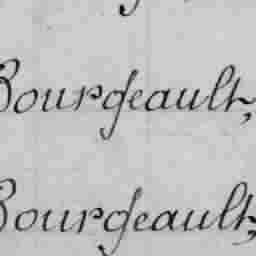 Bourgeault,
Bourgeault,